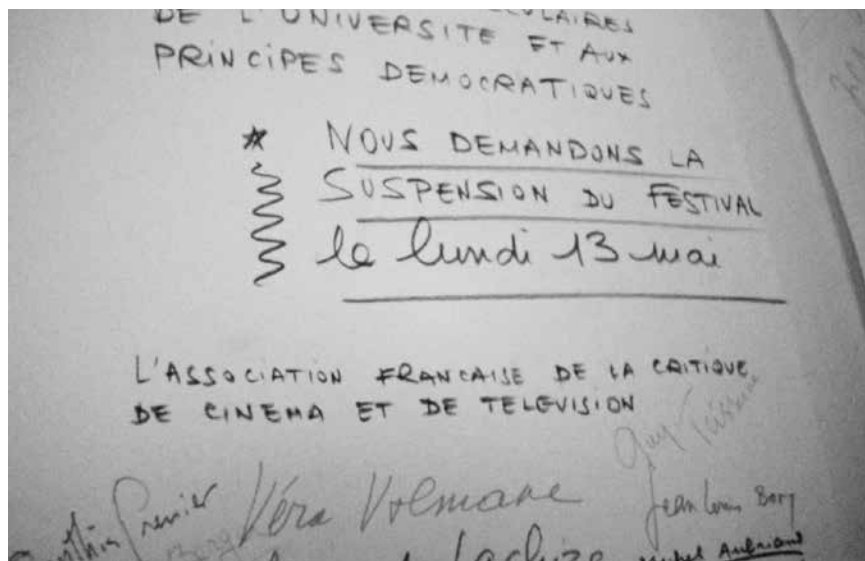 DE L'UNIVERSITE ET AUX
PRINCIPES DEMOCRATIQUES
* NOUS DEMANDONS LA
SUSPENSION DU FESTIVAL
le lundi 13 mai
L'ASSOCIATION FRANCAISE DE LA CRITIQUE
DE CINEMA ET DE TELEVISION
Guy Teisseire
Grenier Véra Volmane Jean Louis Bory
Michel Aubriant